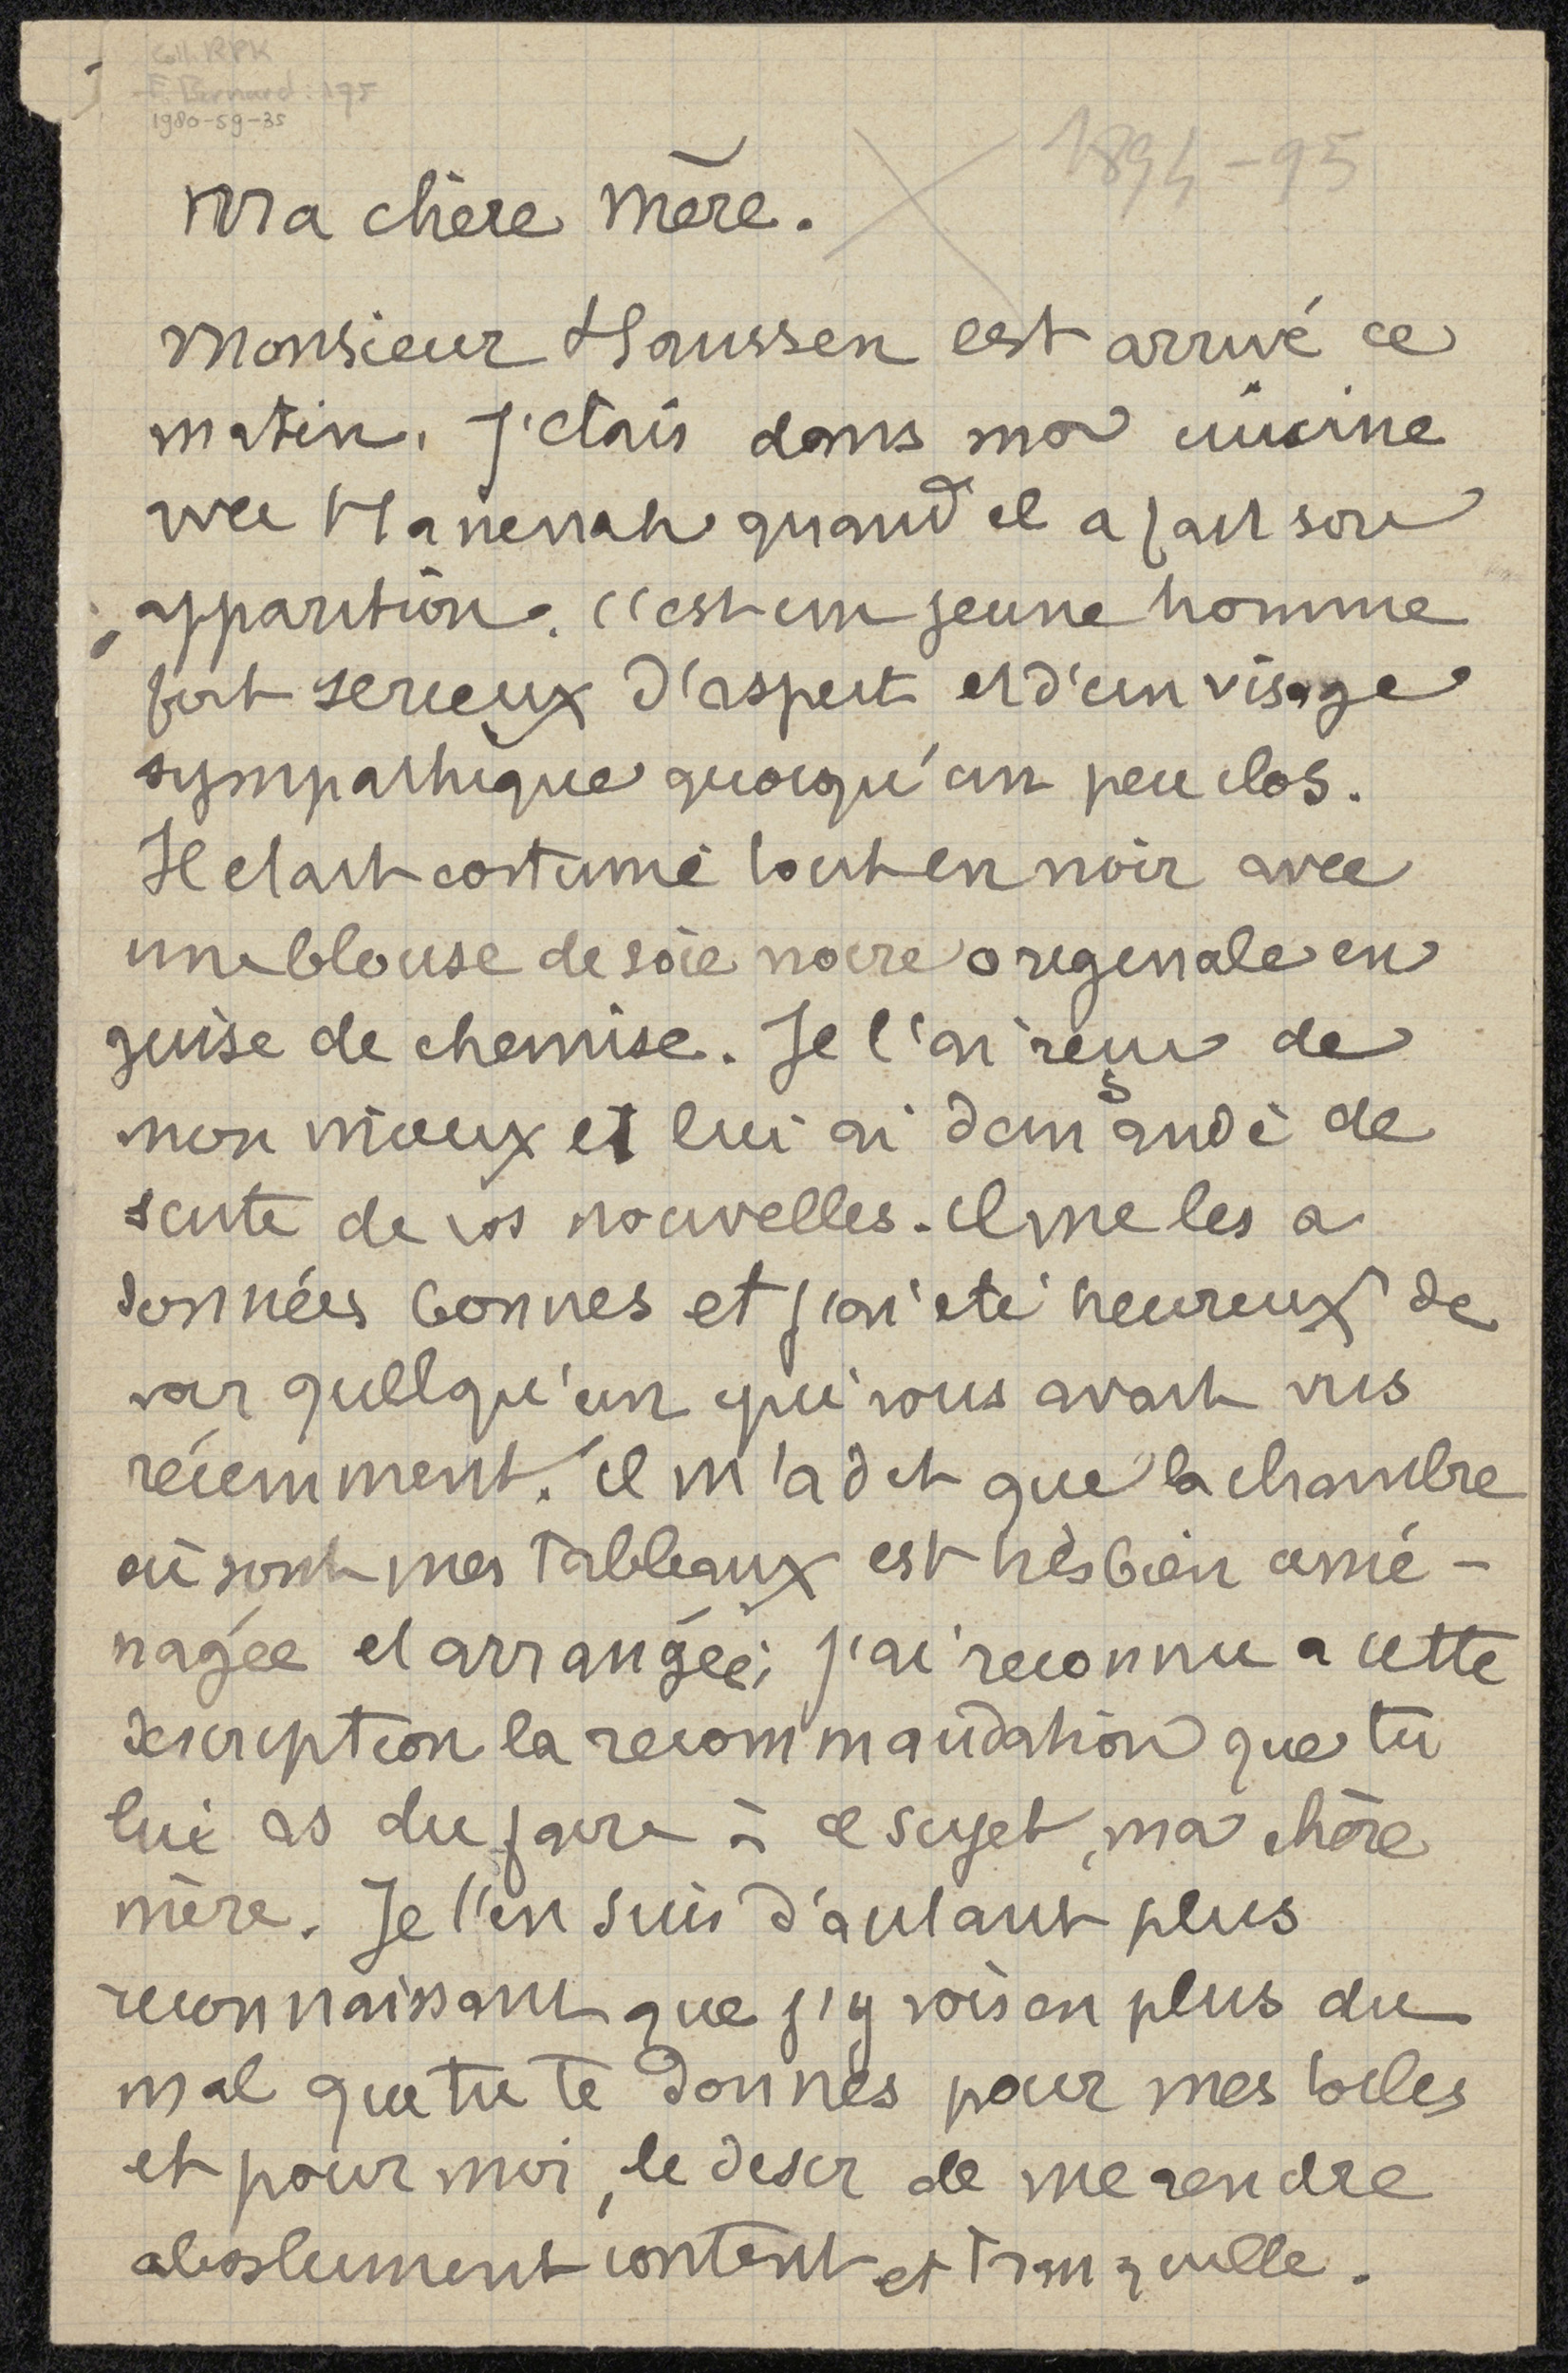 Coll. RPK
E. Bernard: 195
1980-59-35
1894-95
Ma chère Mère.
Monsieur Haussen est arrivé ce
matin. J'étais dans ma cuisine
avec Hanenah quand il a fait son
apparition. C'est un jeune homme
fort serieux d'aspect et d'un visage
sympathique quoiqu'un peu clos.
Il etait costumé tout en noir avec
une blouse de soie noire originale en
guise de chemise. Je l'ai reçu de
mon mieux et lui ai demandé de
suite de vos nouvelles. Il me les a
données bonnes et j'ai été heureux de
voir quellqu'un qui vous avait vus
récemment. il m'a dit que la chambre
où sont mes tableaux est très bien amé-
nagée et arrangée; j'ai reconnu a cette
description la recommandation que tu
lui as du faire à ce sujet, ma chère
mère. Je t'en suis d'autant plus
reconnaissant que j'y vois en plus du
mal que tu te donnes pour mes toiles
et pour moi, le desir de me rendre
absolument content et tranquille.